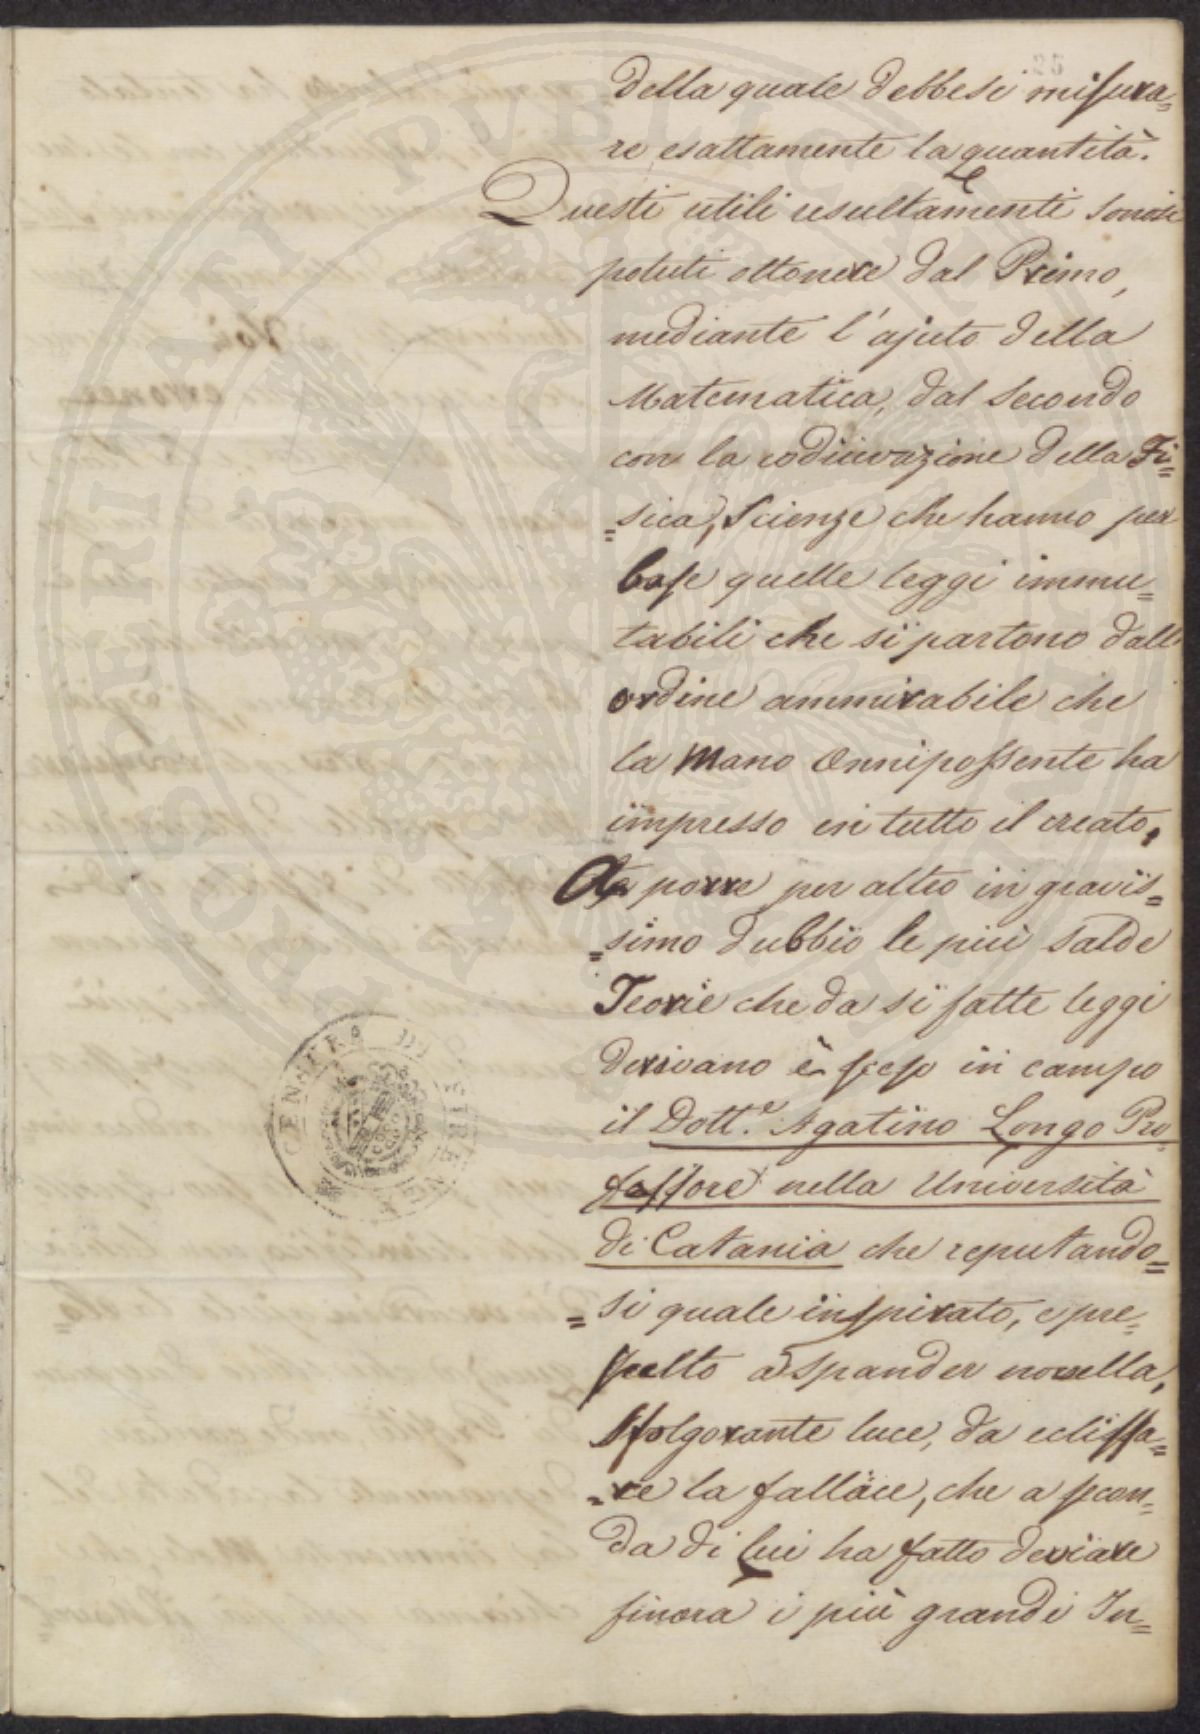 della quale debbesi misura=
re esattamente la quantità.
Questi utili resultamenti sonosi
potuti ottenere dal Primo,
mediante l'ajuto della
Matematica, dal Secondo
con la codiuvazione della Fi=
=sica, Scienze che hanno per
base quelle leggi immu=
tabili che si partono dall'
ordine ammirabile che
la Mano Onnipossente ha
impresso in tutto il creato.
A porre per altro in gravis=
=simo dubbio le più salde
Teorie che da sì fatte leggi
derivano è sceso in campo
il Dott.e Agatino Longo Pro
fessore nella Università
di Catania che reputando=
=si quale inspirato, e pre=
scelto a spander novella,
sfolgorante luce, da eclissa=
=re la fallace, che a secon=
da di lui ha fatto deviare
finora i più grandi In=
PROSPERITATI PUBLICAE